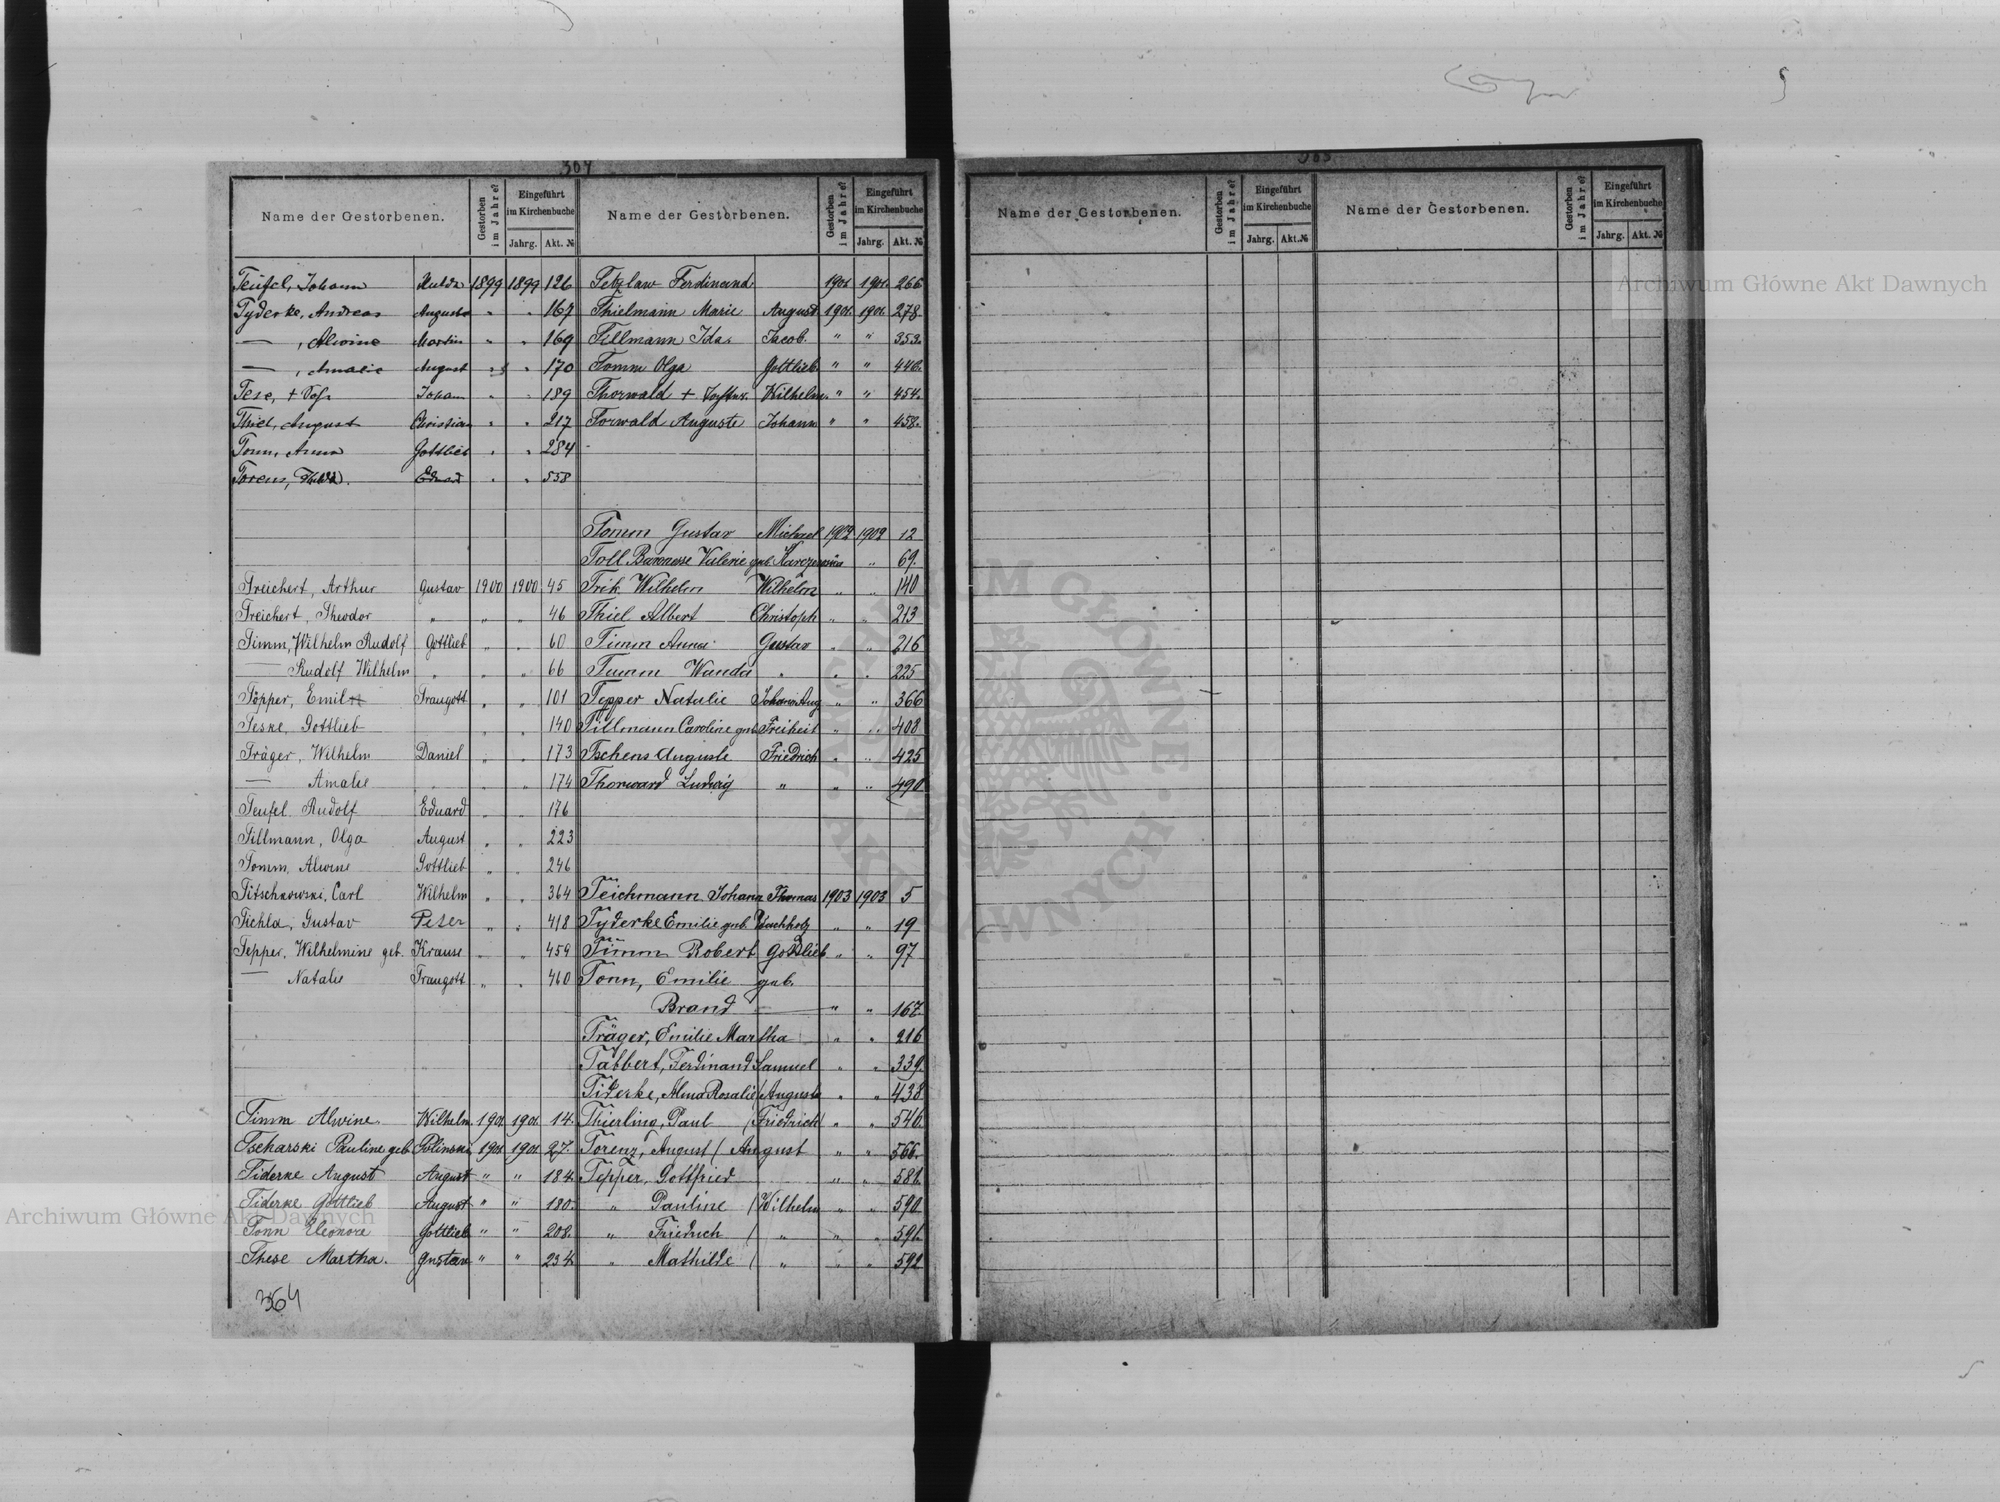 364
Name der Gestorbenen.
Gestorben im Jahre?
Eingeführt im Kirchenbuche
Jahrg.
Akt. №
Teufel, Johann Hulda 1899 1899 126
Tyderke, Andreas August " " 167
— , Alwine Martin " " 169
— , Amalie August " " 170
Tese, + Johann " " 189
Thiel, August Christian " " 217
Tonn, Anna Gottlieb " " 284
Torenz, Eduard " " 558
Treichert, Arthur Gustav 1900 1900 45
Treichert, Theodor " " " 46
Timm, Wilhelm Rudolf Gottlieb " " 60
— Rudolf Wilhelm " " " 66
Töpper, Emil Traugott " " 101
Teske, Gottlieb " " 140
Träger, Wilhelm Daniel " " 173
— Amalie " " " 174
Teufel Rudolf Eduard " " 176
Tillmann, Olga August " " 223
Tomm, Alwine Gottlieb " " 246
Titschkowski, Carl Wilhelm " " 364
Tichla, Gustav Peter " " 418
Tepper, Wilhelmine geb. Krause " " 459
— Natalie Traugott " " 460
Timm Alwine Wilhelm 1901. 1901. 14.
Tscharski Pauline geb. Polinski 1901 1901 27.
Tiderke August August " " 184.
Tiderke Gottlieb August " " 180.
Tonn Eleonore Gottlieb " " 208.
These Martha. Gustav " " 234.
364
Name der Gestorbenen.
Gestorben im Jahre?
Eingeführt im Kirchenbuche
Jahrg.
Akt. №
Tetzlaw Ferdinand 1901. 1901. 266
Thielmann Marie August 1901. 1901. 278.
Tillmann Ida. Jacob. " " 353.
Tomm Olga Gottlieb " " 446.
Thorwald + Wilhelm. " " 454.
Torwald Auguste Johann " " 458.
Tomm Gustav Michael 1902 1902 12
Toll Baronesse Valerie geb. " 69.
Trik Wilhelm Wilhelm " " 140
Thiel Albert Christoph " " 213
Timm Anna Gustav " " 216
Tumm Wanda " " " 225
Tepper Natalie Johann Aug. " " 366
Tillmann Caroline geb. Freiheit " " 408
Tschens Auguste Friedrich " " 425
Thorward Ludwig " " " 490
Teichmann Johann Thomas 1903 1903 5
Tyderke Emilie geb. Buchholz " " 19
Timm Robert Gottlieb " " 97
Tonn, Emilie geb.
Brand — " " 167.
Träger, Emilie Martha " " 216
Tabbert, Ferdinand Samuel " " 339.
Tiderke, Alma Rosalie / August " " 438
Thierling, Paul / Friedrich / " " 546.
Torenz, August / August " " 566.
Tepper, Gottfried " " 581.
" Pauline / Wilhelm " " 590.
" Friedrich / " " " 591.
" Mathilde / " " " 592
Name der Gestorbenen.
Gestorben im Jahre?
Eingeführt im Kirchenbuche
Jahrg.
Akt. №
Name der Gestorbenen.
Gestorben im Jahre?
Eingeführt im Kirchenbuche
Jahrg.
Akt. №
Archiwum Główne Akt Dawnych
Archiwum Główne Akt Dawnych
ARCHIWUM GŁÓWNE AKT DAWNYCH